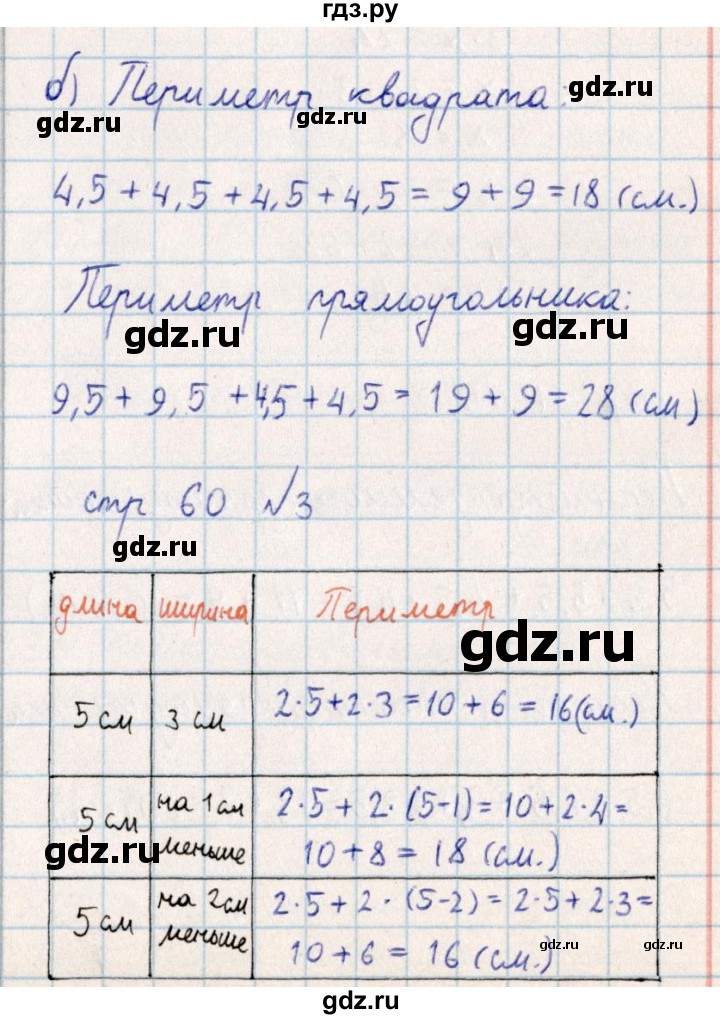 гдз.ру
б) Периметр квадрата:
gdz.ru gdz.ru gdz.ru
4,5 + 4,5 + 4,5 + 4,5 = 9 + 9 = 18 (см.)
Периметр прямоугольника:
gdz.ru gdz.ru
9,5 + 9,5 + 4,5 + 4,5 = 19 + 9 = 28 (см)
стр 60 №3
gdz.ru
длина ширина Периметр
gdz.ru
5 см 3 см 2·5+2·3=10+6=16(см.)
5 см на 1 см меньше 2·5+2·(5-1)=10+2·4=
10+8=18 (см.)
gdz.ru gdz.ru
5 см на 2 см меньше 2·5+2·(5-2)=2·5+2·3=
10+6=16 (см.)
gdz.ru gdz.ru
gdz.ru